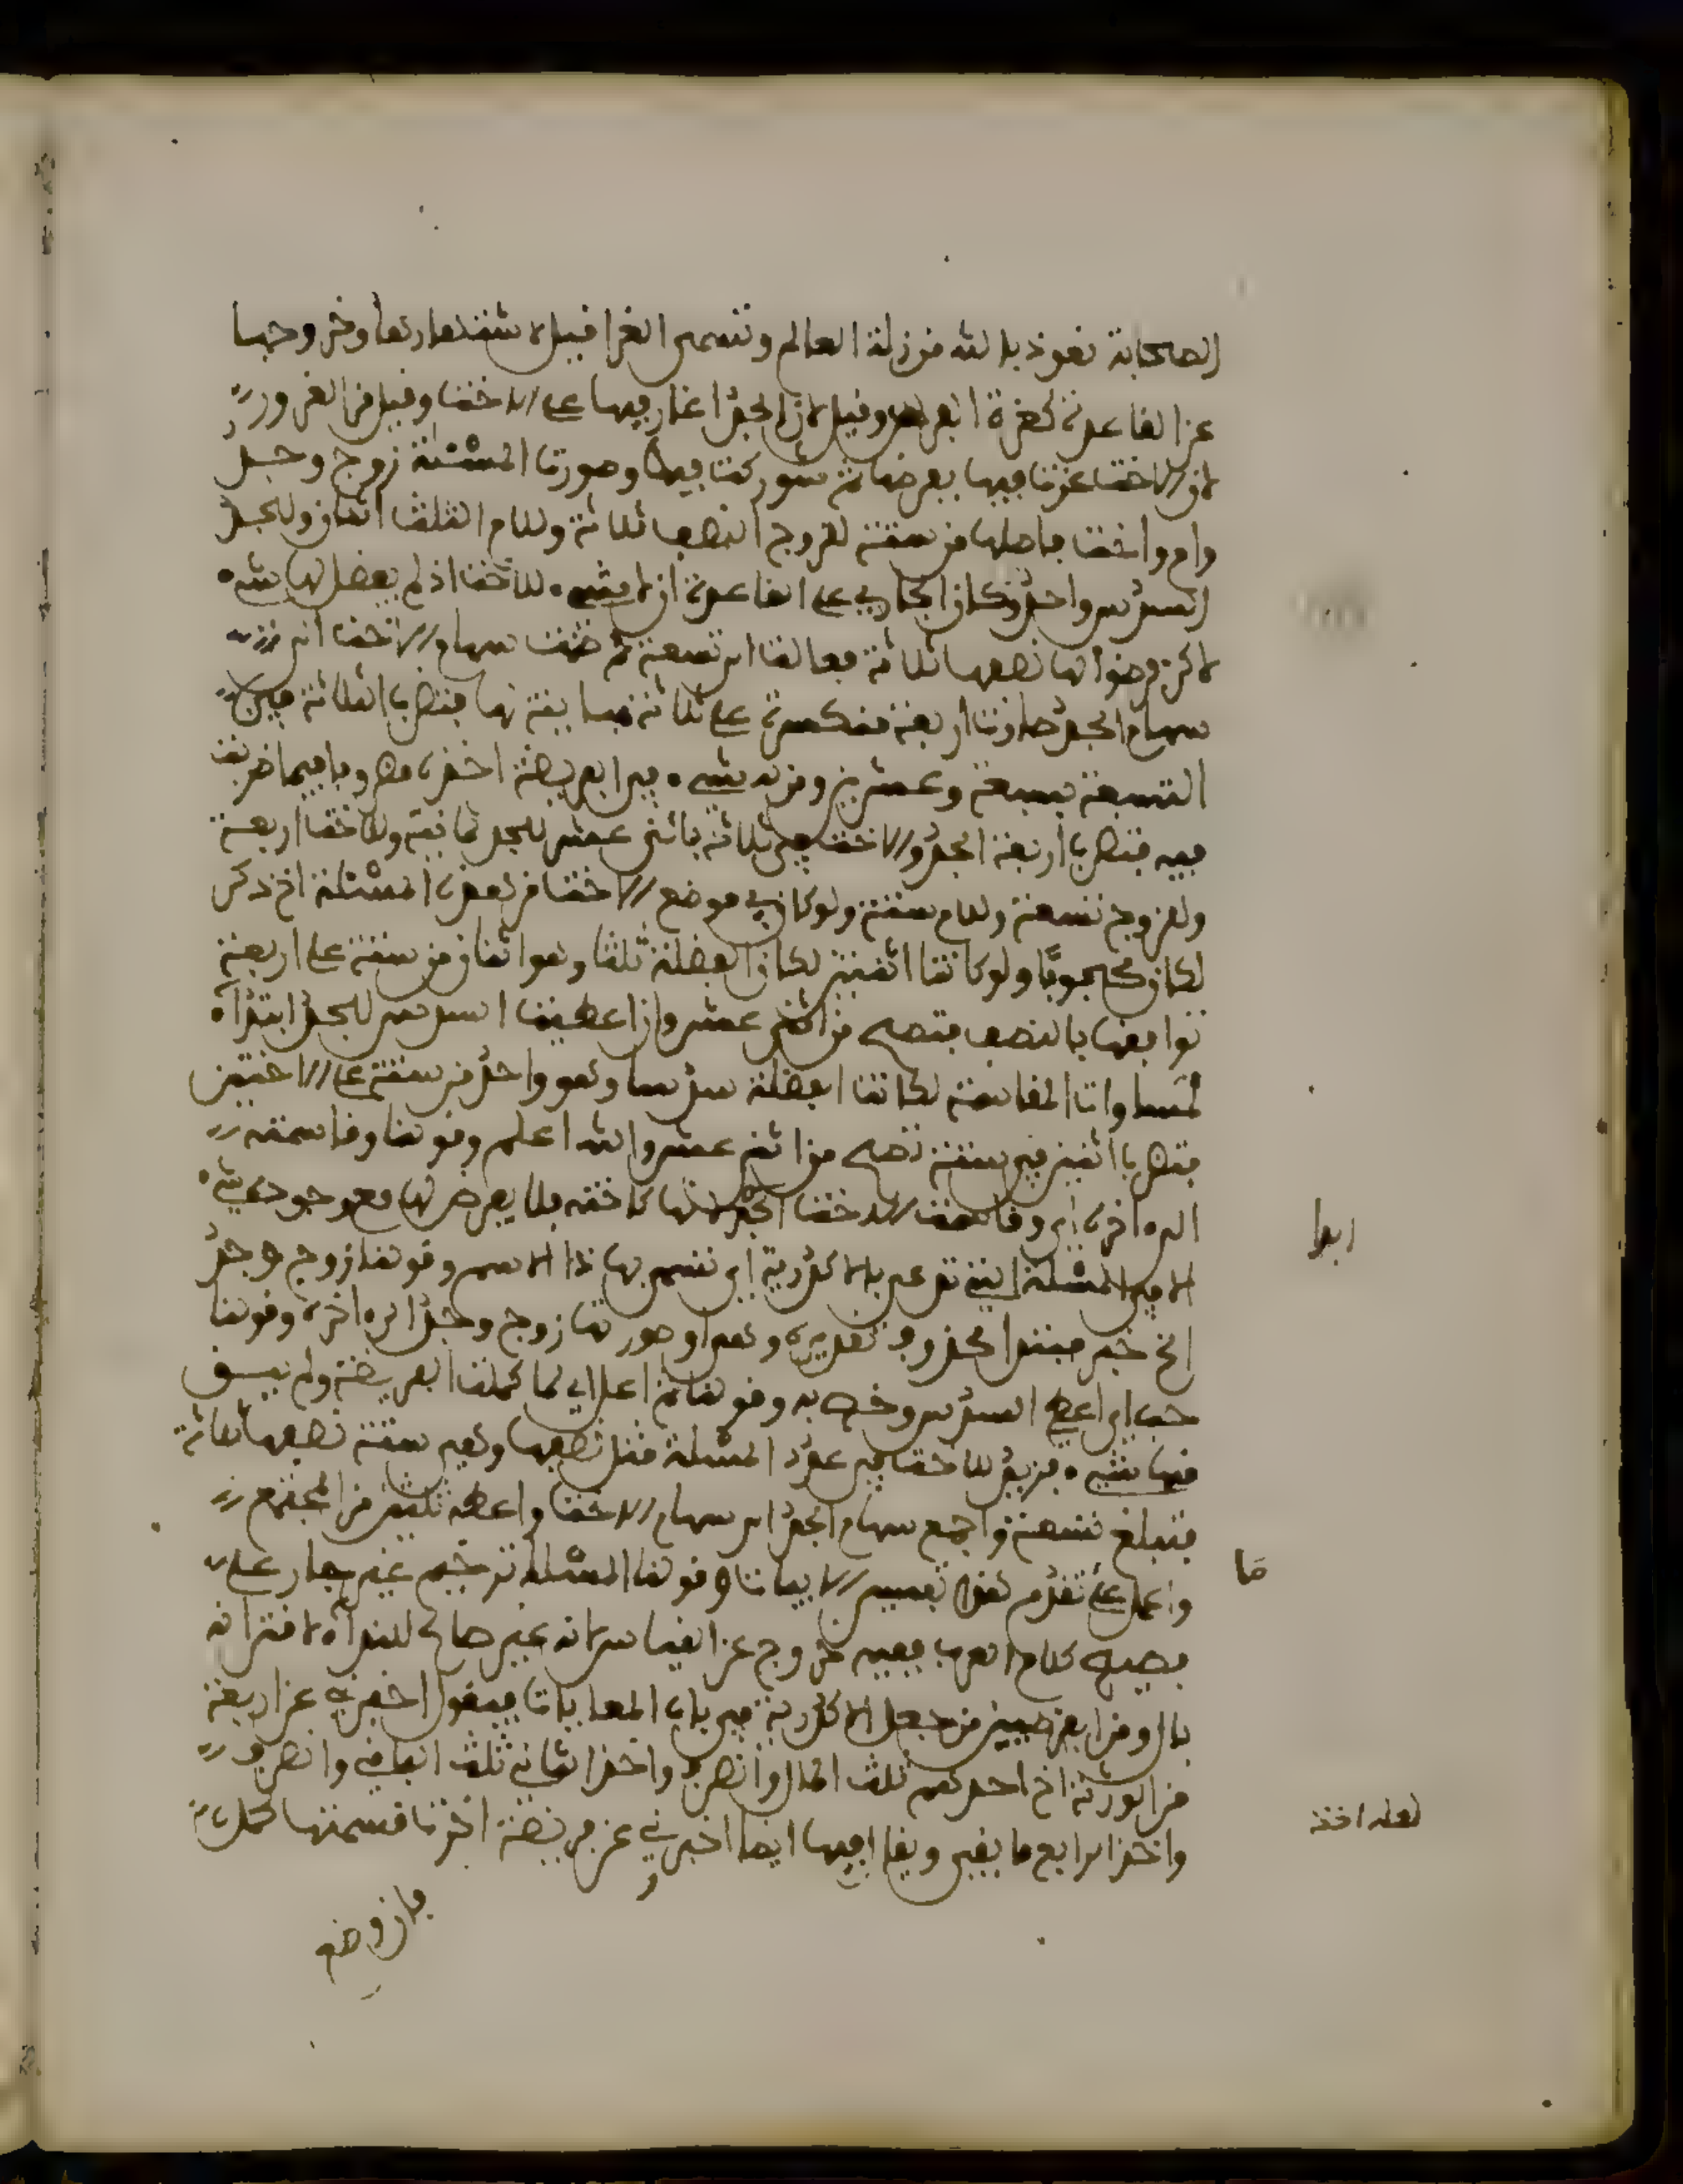 الصحابة نعوذ بالله من زلة العالم وتسمى الغرا قيل لاشتهارها وخروجها
عن القاعدة كغرة الفرس وقيل لان الجد اغار فيها على الاخت وقيل من الغرور
لان الاخت غرت فيها بفرضها ثم شوركت فيها وصورة المسئلة زوج وجد
وام واخت فاصلها من ستة للزوج النصف ثلاثة وللام الثلث اثنان وللجد
السدس واحد وكان الجاري على القاعدة ان لا شيء للاخت اذ لم يفضل لها شيء
لاكن فرضوا لها نصفها ثلاثة فعالت الى تسعة ثم ضمت سهام الاخت الى
سهام الجد صارت اربعة منكسرة على ثلاثة مباينة لها فتضرب الثلاثة في
التسعة بسبعة وعشرين ومن له شيء من الفريضة اخذه مضروبا فيما ضربت
فيه فتضرب اربعة الجد والاخت في ثلاثة باثني عشر للجد ثمانية وللاخت اربعة
وللزوج تسعة وللام ستة ولو كان في موضع الاخت من هذه المسئلة اخ ذكر
لكان محجوبا ولو كانتا اثنتين لكان الفضلة ثلثا وهو اثنان من ستة على اربعة
توافقها بالنصف فتصح من اثني عشر وان اعطيت السدس للجد ابتداء
لمساوات المقاسمة لكانت الفضلة سدسا وهو واحد من ستة على الاختين
فتضرب اثنين في ستة تصح من اثني عشر والله اعلم وقولنا وقاسمته
الى اخره اي وقاسمت الاخت الجد لانها كاخته فلا يفرض لها مع وجوده شيء
الا في المسئلة التي تدعى بالاكدرية اي تسمى بهذا الاسم وقولنا زوج وجد
الخ خبر مبتدا محذوف تقديره وهي او صورتها زوج وجد الى اخره وقولنا
حب اي اعطي السدس وخص به وقولنا ثم اعل اي لما كملت الفريضة ولم يبق
فيها شيء فزيد للاخت في عدد المسئلة مثل نصفها وهي ستة نصفها ثلاثة
فتبلغ تسعة واجمع سهام الجد الى سهام الاخت واعطه ثلثين من المجتمع
واعمل على تقدم هذا تفسير الابيات وقولنا المسئلة ترخيم غير جار على
فصيح كلام العرب ففيه خروج عن القياس لانه غير صالح للنداء لاقترانه
بال ومن الفرضيين من جعل الاكدرية في باب المعايات فيقول اخبرني عن اربعة
من الورثة اخ احدهم ثلث المال وانصرف واخذ الثاني ثلث الباقي وانصرف
واخذ الرابع ما بقي ويقال فيها ايضا اخبرني عن فريضة اخرت قسمتها لحمل
فان وضع
ربوا
ما
لعله اخذ